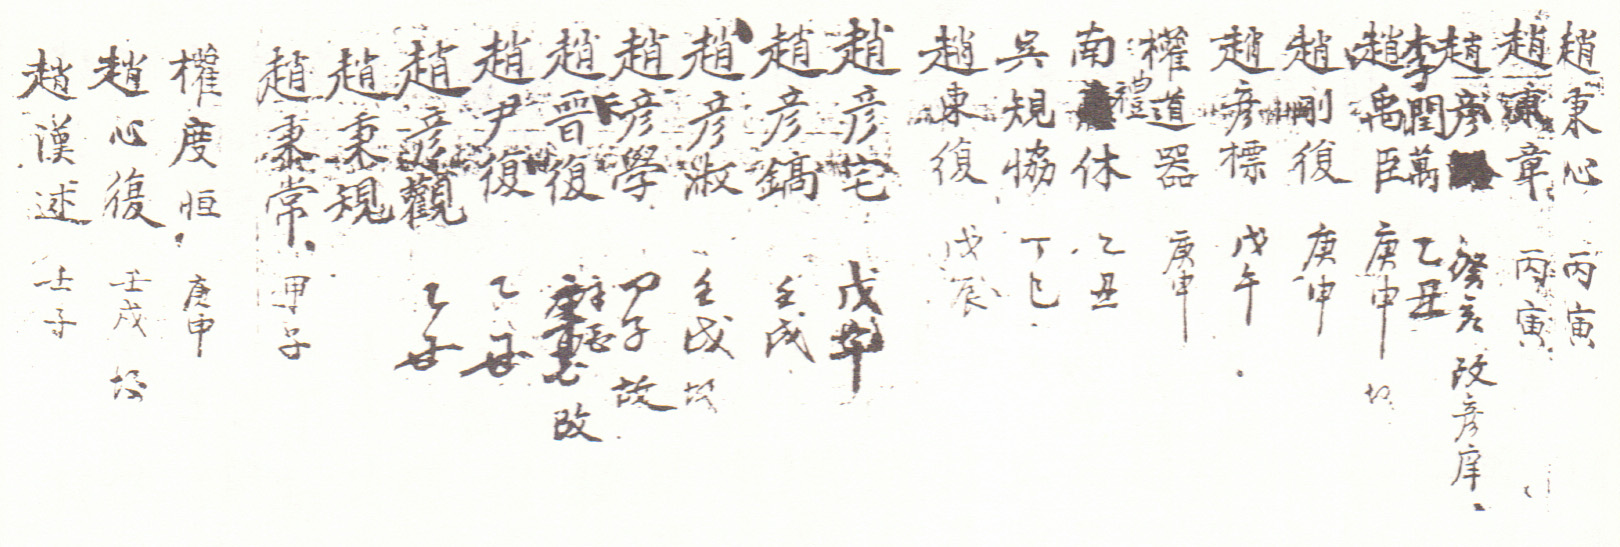 趙秉心 丙寅
趙秉章 丙寅
趙彦 癸亥 改彦庠
李閏萬 乙丑
趙禹臣 庚申 故
趙剛復 庚申
趙彦標 戊午
權道器 庚申
南禮休 乙丑
吳規協 丁巳
趙東復 戊辰
趙彦宅 戊午
趙彦鎬 壬戌
趙彦淑 壬戌 故
趙彦學 甲子 故
趙晋復 改
趙尹復 乙丑
趙彦觀 乙丑
趙秉規
趙秉常 甲子
權度恒 庚申
趙心復 壬戌 故
趙漢述 壬子